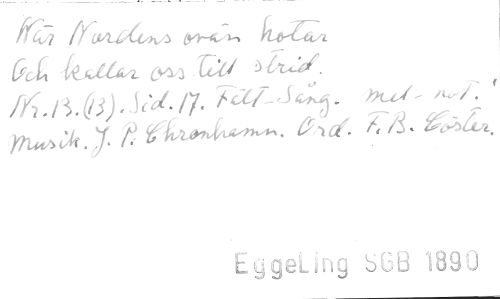 När Nordens ovän hotar
Och kallar oss till strid.
Nr. 13. (13). Sid. 17. Fält-Sång. mel-not.
Musik. J. P. Chronhamn. Ord. F. B. Cöster.
EggeLing SGB 1890